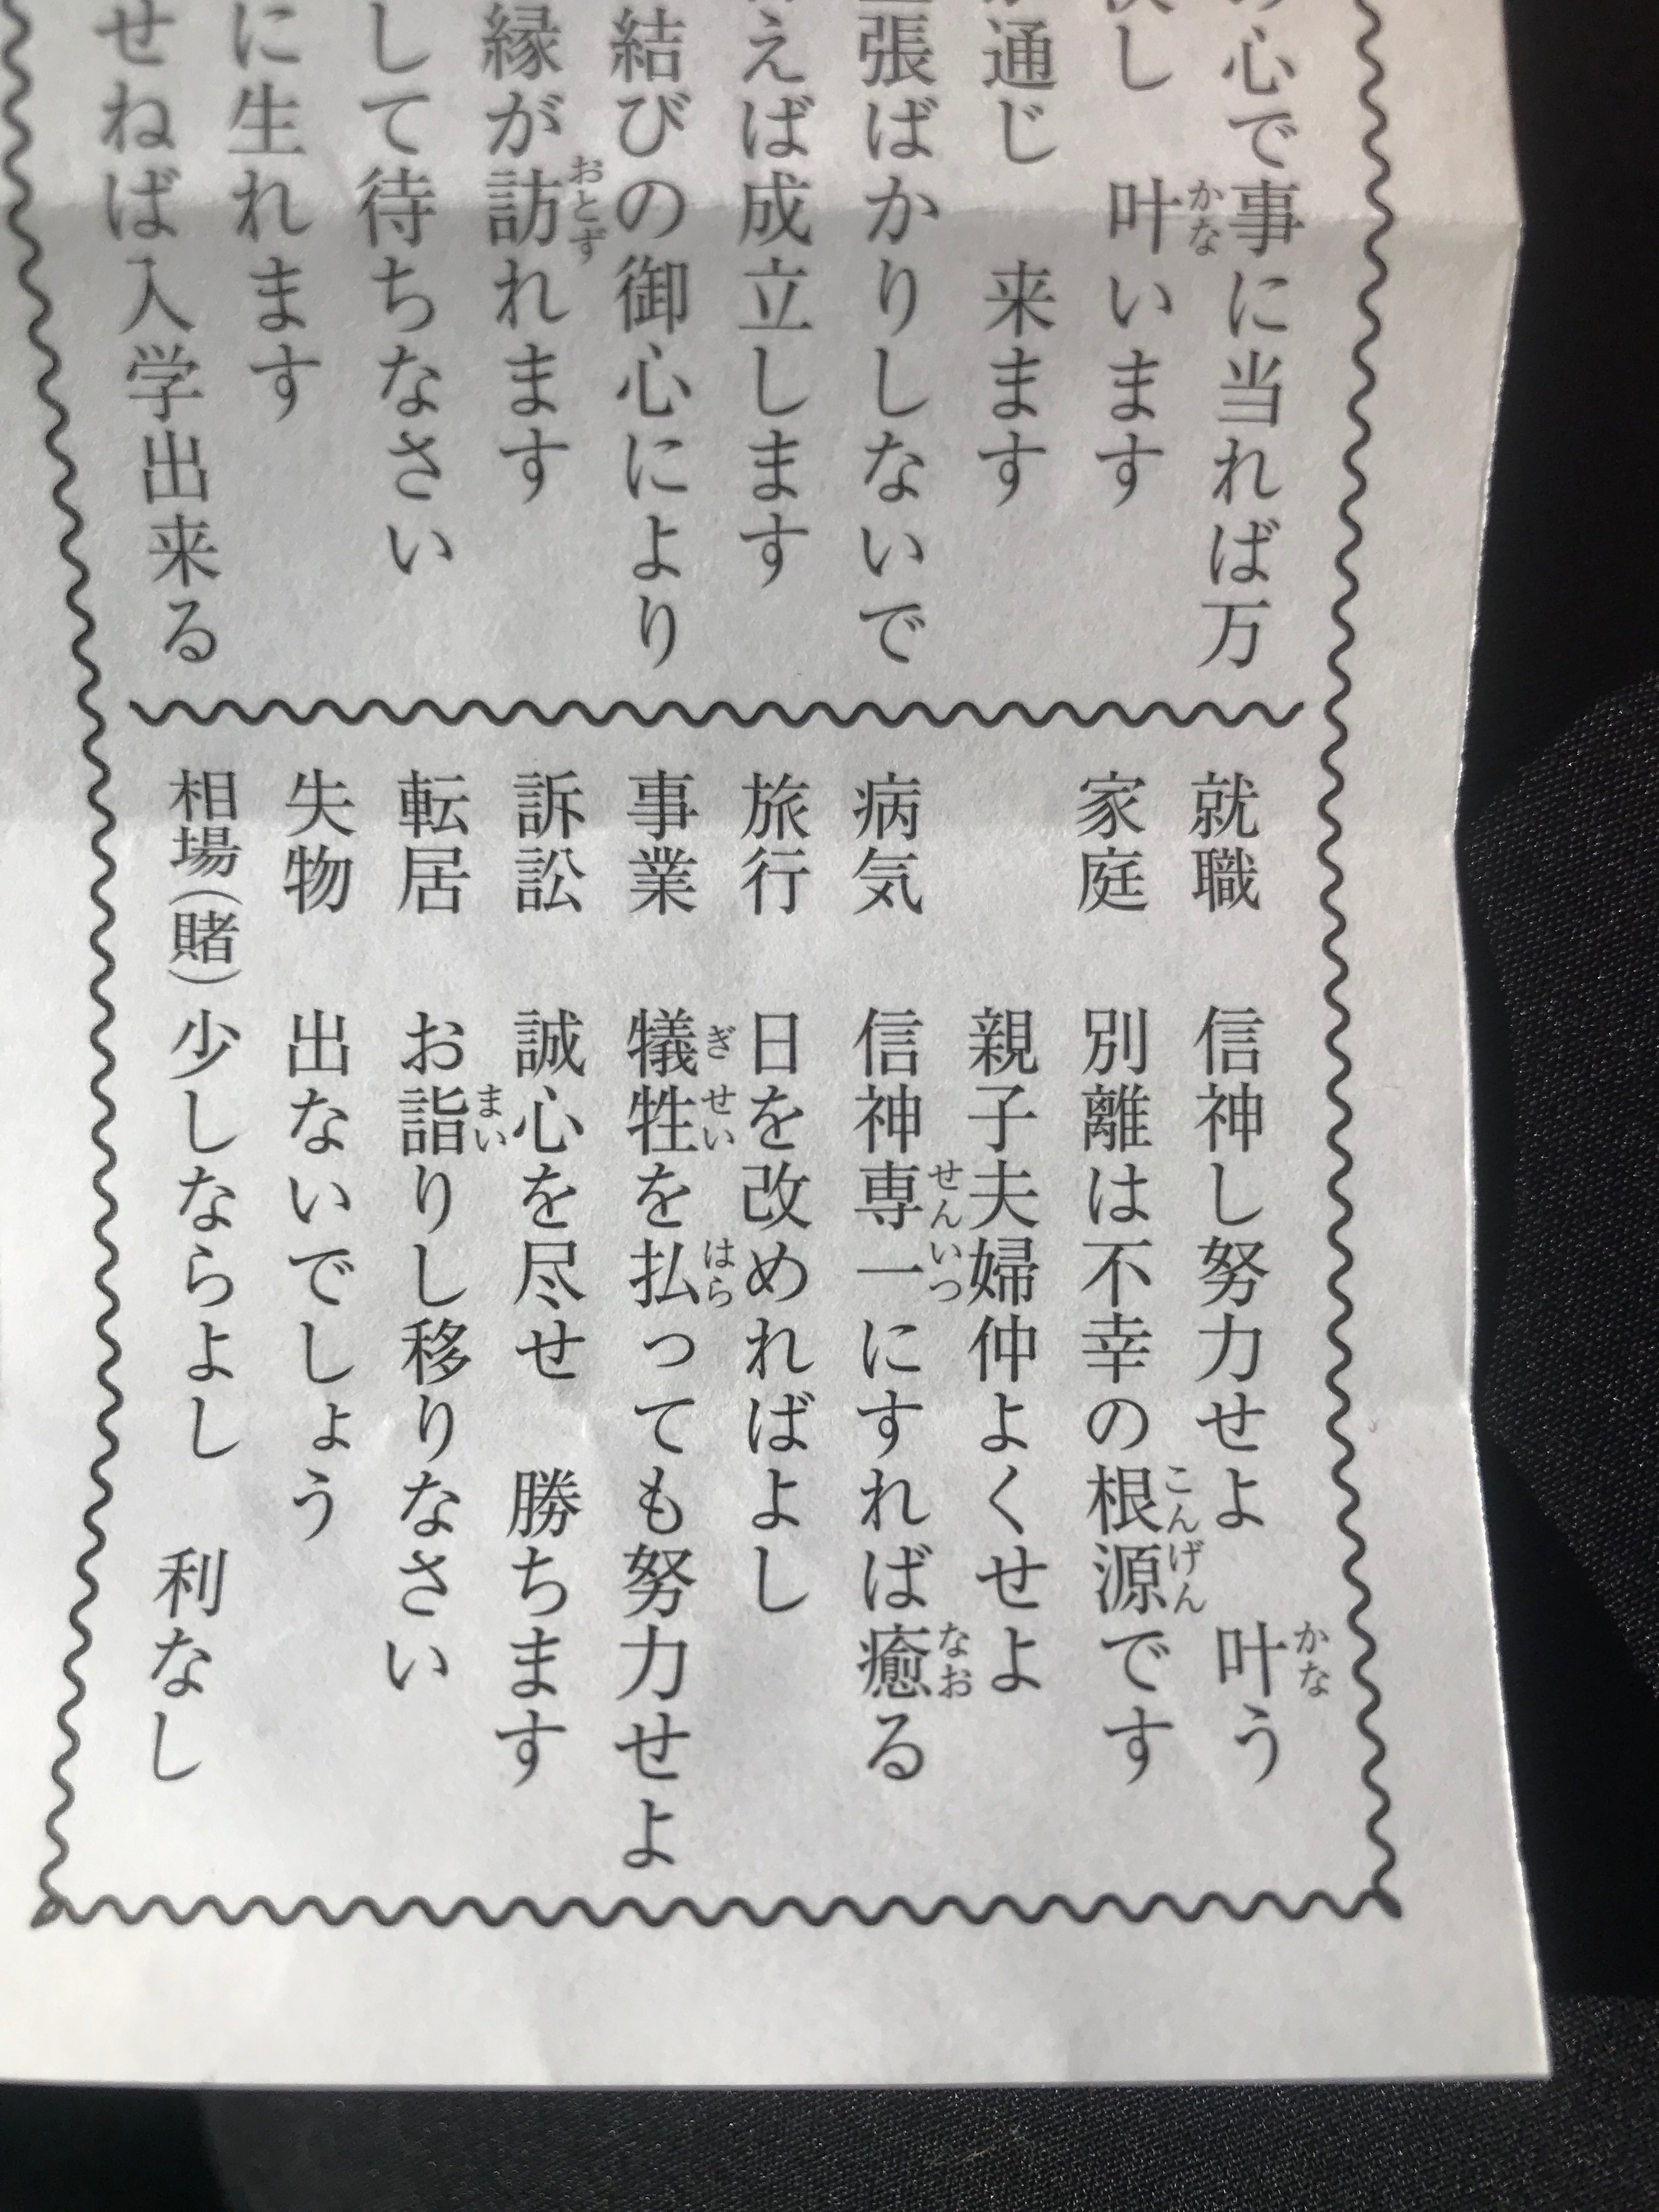 心で事に当れば万
し　叶います
通じ　来ます
張ばかりしないで
えば成立します
結びの御心により
縁が訪れます
して待ちなさい
に生れます
せねば入学出来る
就職　信神し努力せよ　叶う
家庭　別離は不幸の根源です
親子夫婦仲よくせよ
病気　信神専一にすれば癒る
旅行　日を改めればよし
事業　犠牲を払っても努力せよ
訴訟　誠心を尽せ　勝ちます
転居　お詣りし移りなさい
失物　出ないでしょう
相場（賭）少しならよし　利なし